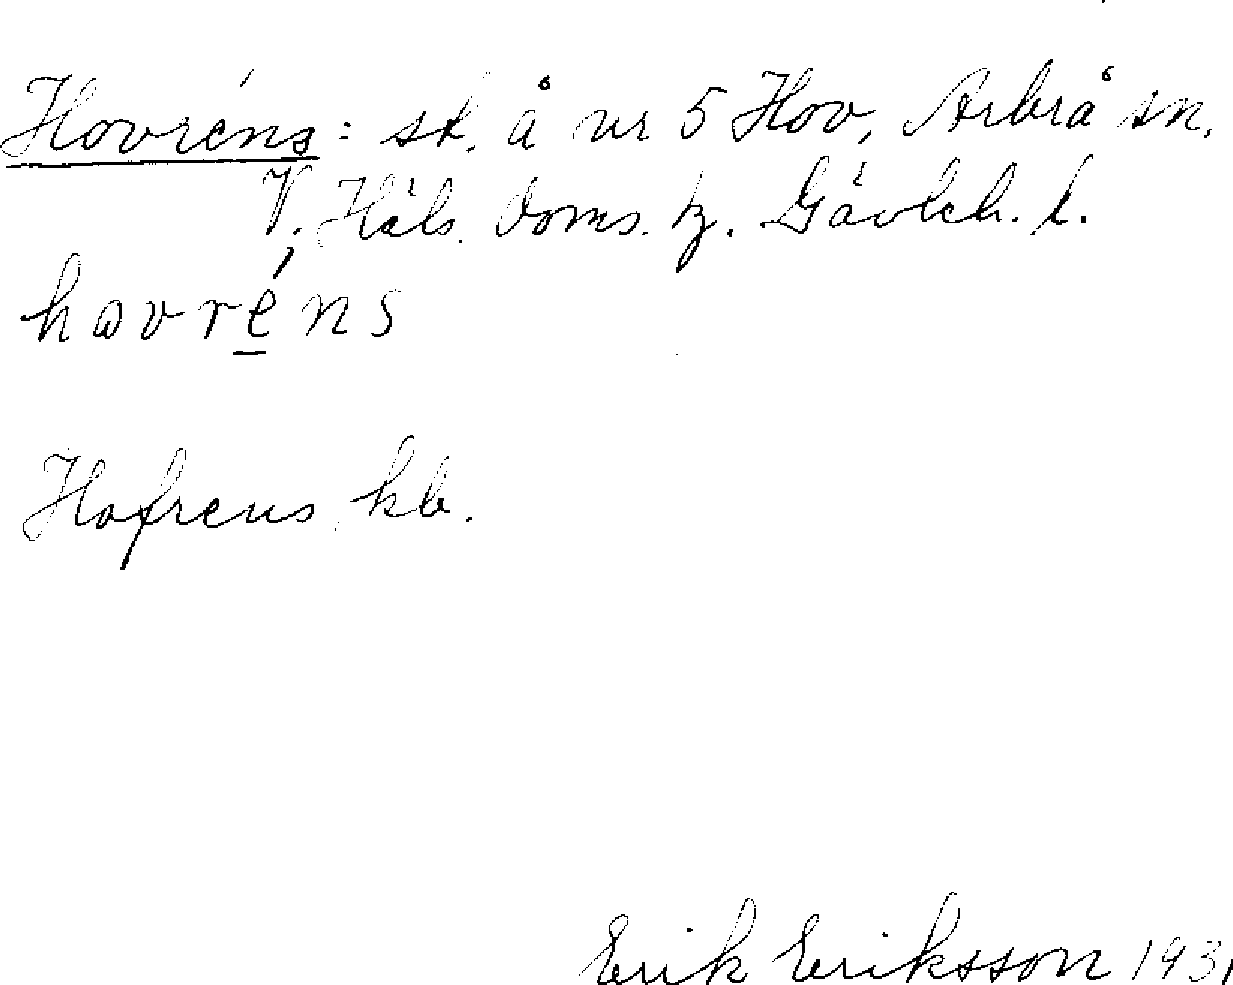 Hovréns: sk. å nr 5 Hov, Arbrå sn.
V. Häls. Doms. h. Gävleb. l.
havréns
Hofrens kb.
Erik Eriksson 1931